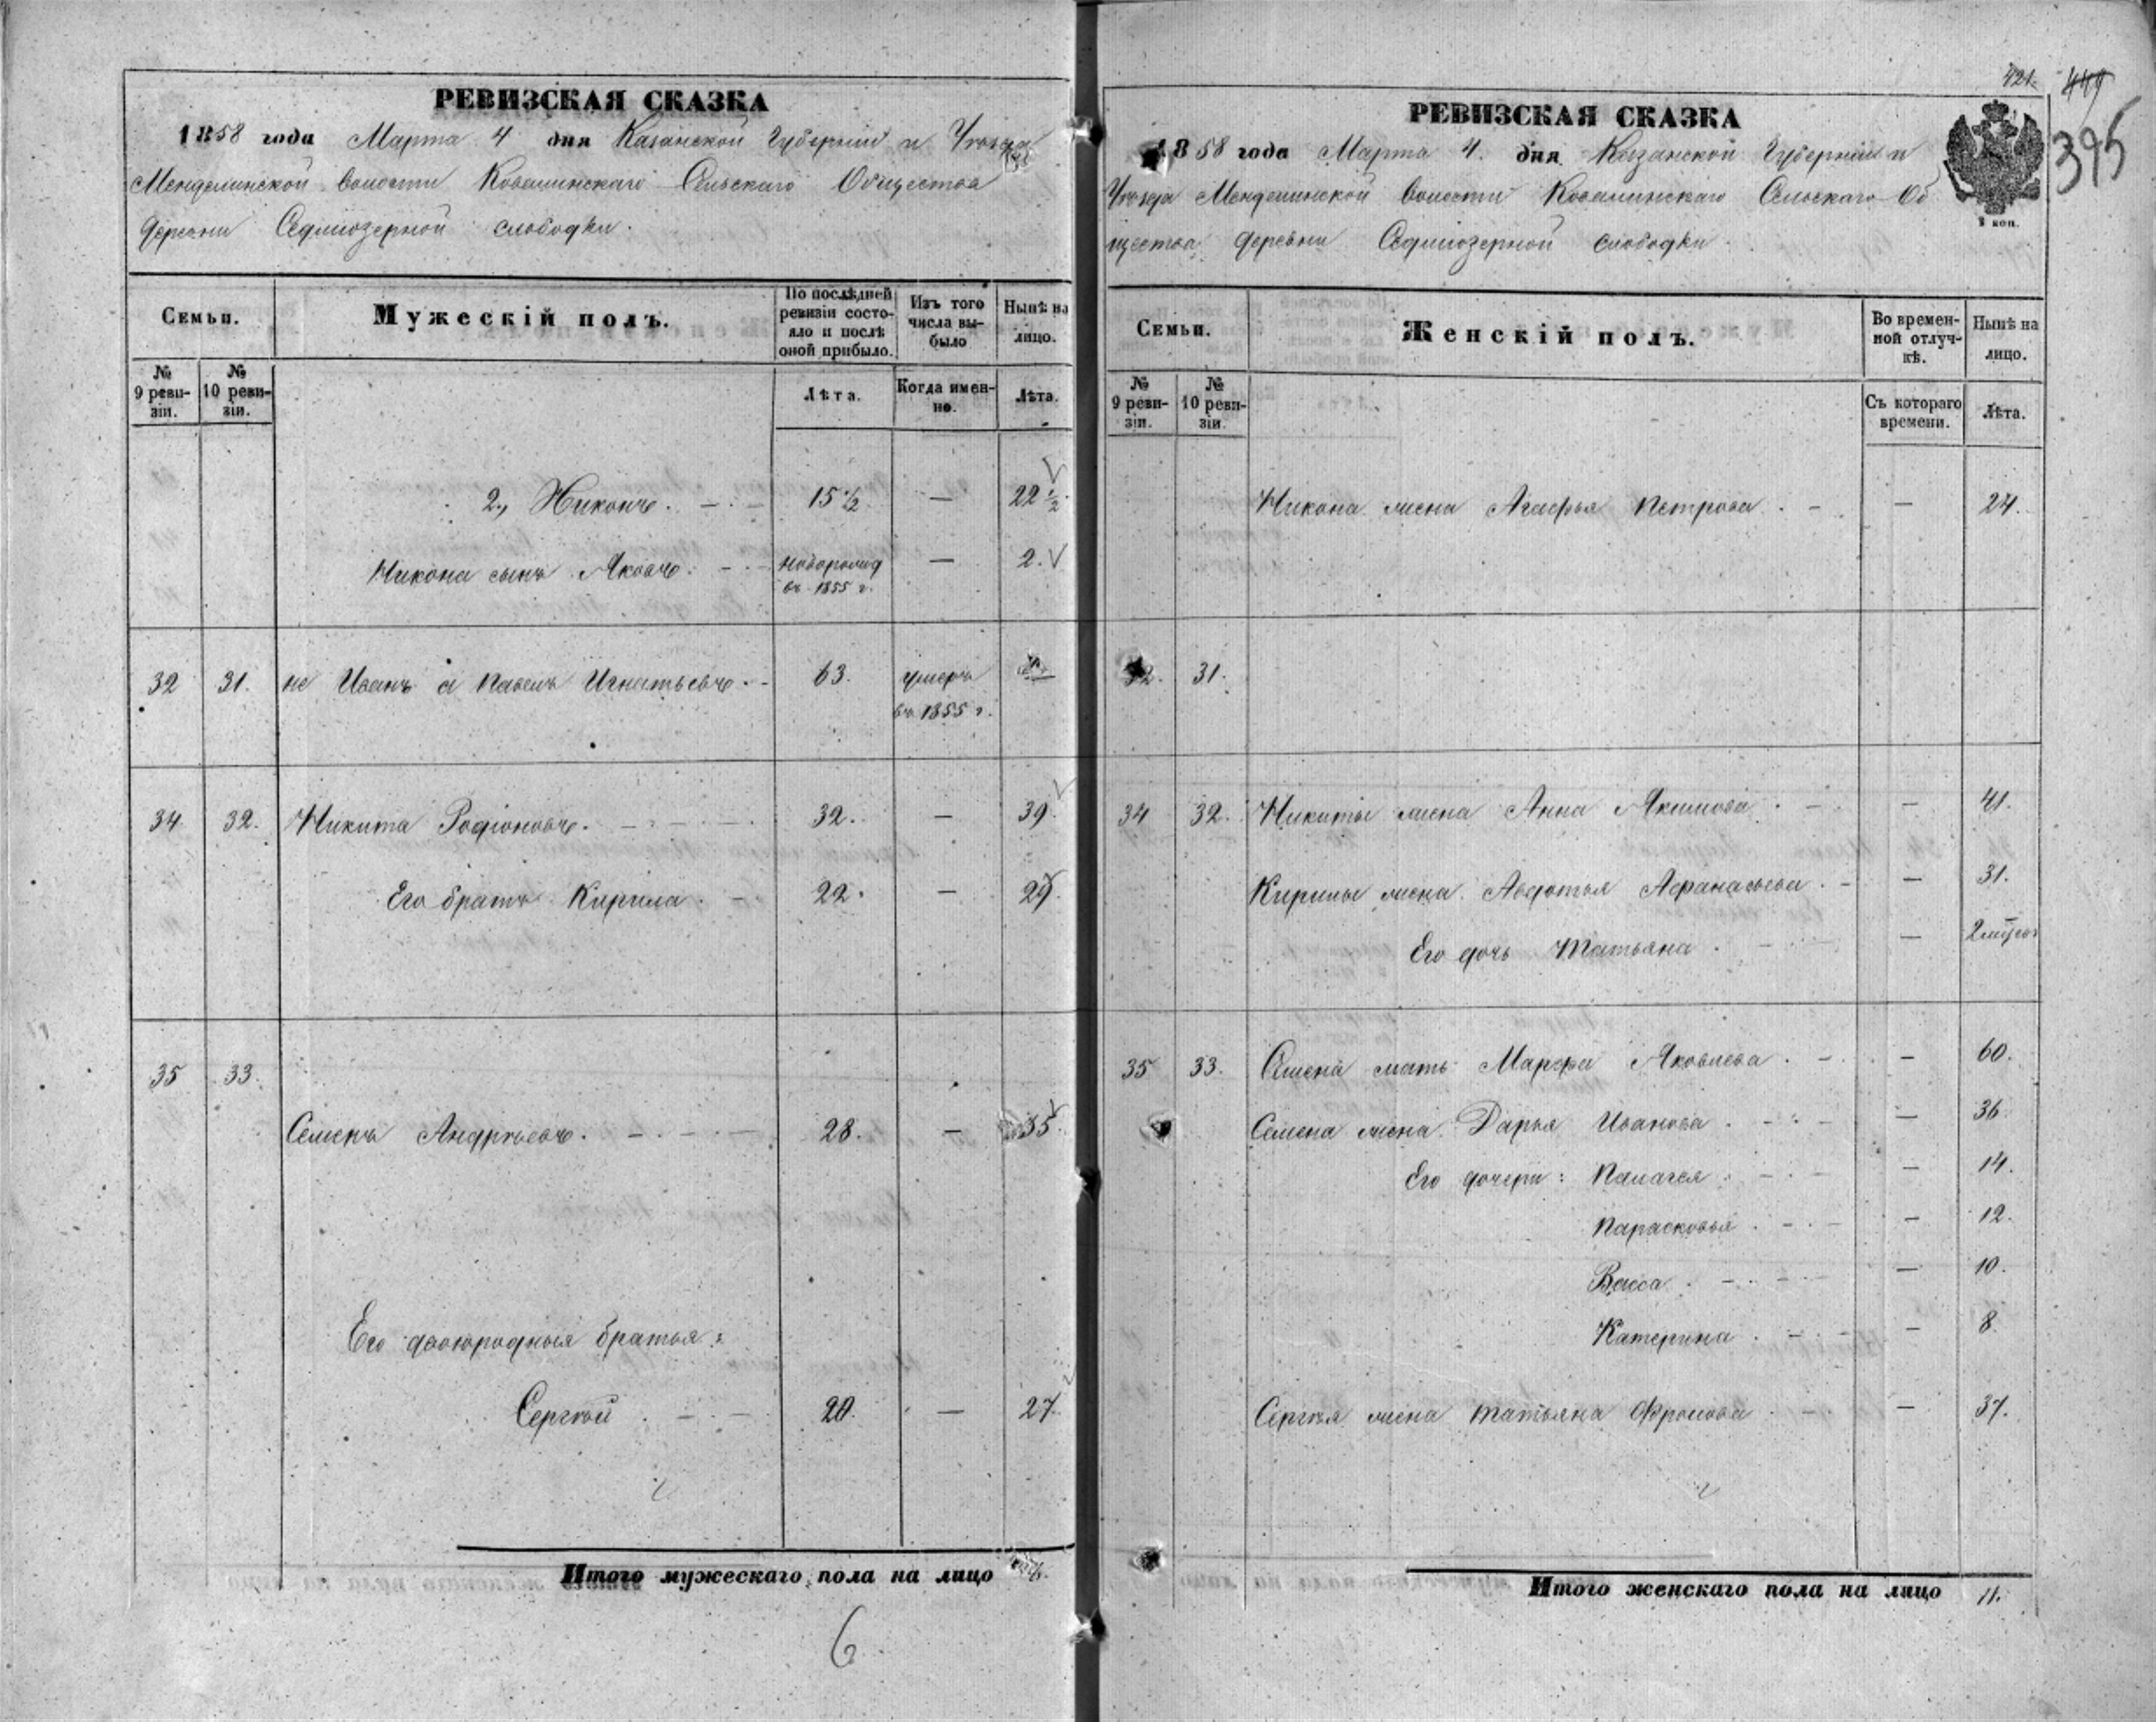 РЕВИЗСКАЯ СКАЗКА
1858 года Марта 4 дня Казанской Губерніи и Уѣзда
Менделинской волости Ковалинскаго Сельскаго Общества
деревни Седміозерной слободки.
Семьи.
Мужескій полъ.
По послѣдней ревизіи состояло и послѣ оной прибыло.
Изъ того числа выбыло
Нынѣ на лицо.
№ 9 ревизіи.
№ 10 ревизіи.
Лѣта.
Когда именно.
Лѣта.
2., Никонъ. — 15 1/2 — 22 1/2
Никона сынъ Яковъ. — новорожд въ 1855 г. — 2.
32 31. не Иванъ а Павелъ Игнатьевъ. 63. умеръ въ 1855 г.
34 32. Никита Родіоновъ. — 32. — 39
Его братъ Кирила. — 22. — 29
35 33.
Семенъ Андрѣевъ. — 28. — 35.
Его двоюродныя братья:
Сергѣй. — 20. — 27.
Итого мужескаго пола на лицо
6
421.
449
395
РЕВИЗСКАЯ СКАЗКА
1858 года Марта 4. дня Казанской Губерніи и
Уѣзда Менделинской волости Ковалинскаго Сельскаго Об
щества деревни Седміозерной слободки.
8 коп.
Семьи.
Женскій полъ.
Во временной отлучкѣ.
Нынѣ на лицо.
№ 9 ревизіи.
№ 10 ревизіи.
Съ котораго времени.
Лѣта.
Никона жена Агафья Петрова. — 24.
32. 31.
34 32. Никиты жена Анна Якимова. — 41.
Кирилы жена Авдотья Афанасьева. — 31.
Его дочь Татьяна. —
35 33. Семена мать Марфа Яковлева. — 60.
Семена жена Дарья Иванова. — 36
Его дочери: Палагея. — 14.
Парасковья. — 12.
Васса. — 10.
Катерина. — 8.
Сергѣя жена Татьяна Фролова. — 37.
Итого женскаго пола на лицо 11.